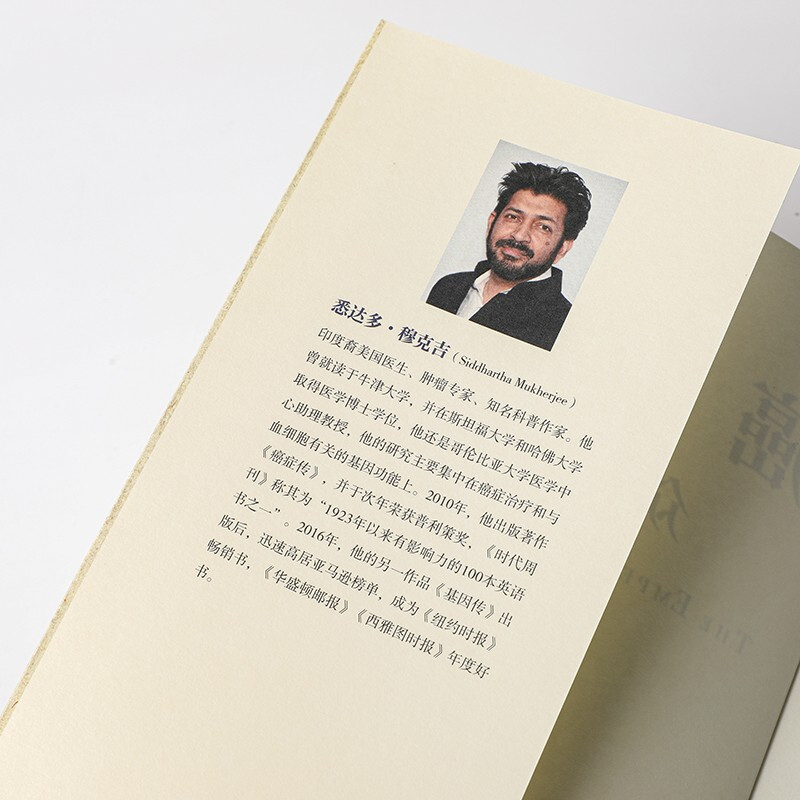 悉达多·穆克吉（Siddhartha Mukherjee）
印度裔美国医生、肿瘤专家、知名科普作家。他
曾就读于牛津大学，并在斯坦福大学和哈佛大学
取得医学博士学位，他还是哥伦比亚大学医学中
心助理教授，他的研究主要集中在癌症治疗和与
血细胞有关的基因功能上。2010年，他出版著作
《癌症传》，并于次年荣获普利策奖，《时代周
刊》称其为“1923年以来有影响力的100本英语
书之一”。2016年，他的另一作品《基因传》出
版后，迅速高居亚马逊榜单，成为《纽约时报》
畅销书，《华盛顿邮报》《西雅图时报》年度好
书。
癌
THE EMP